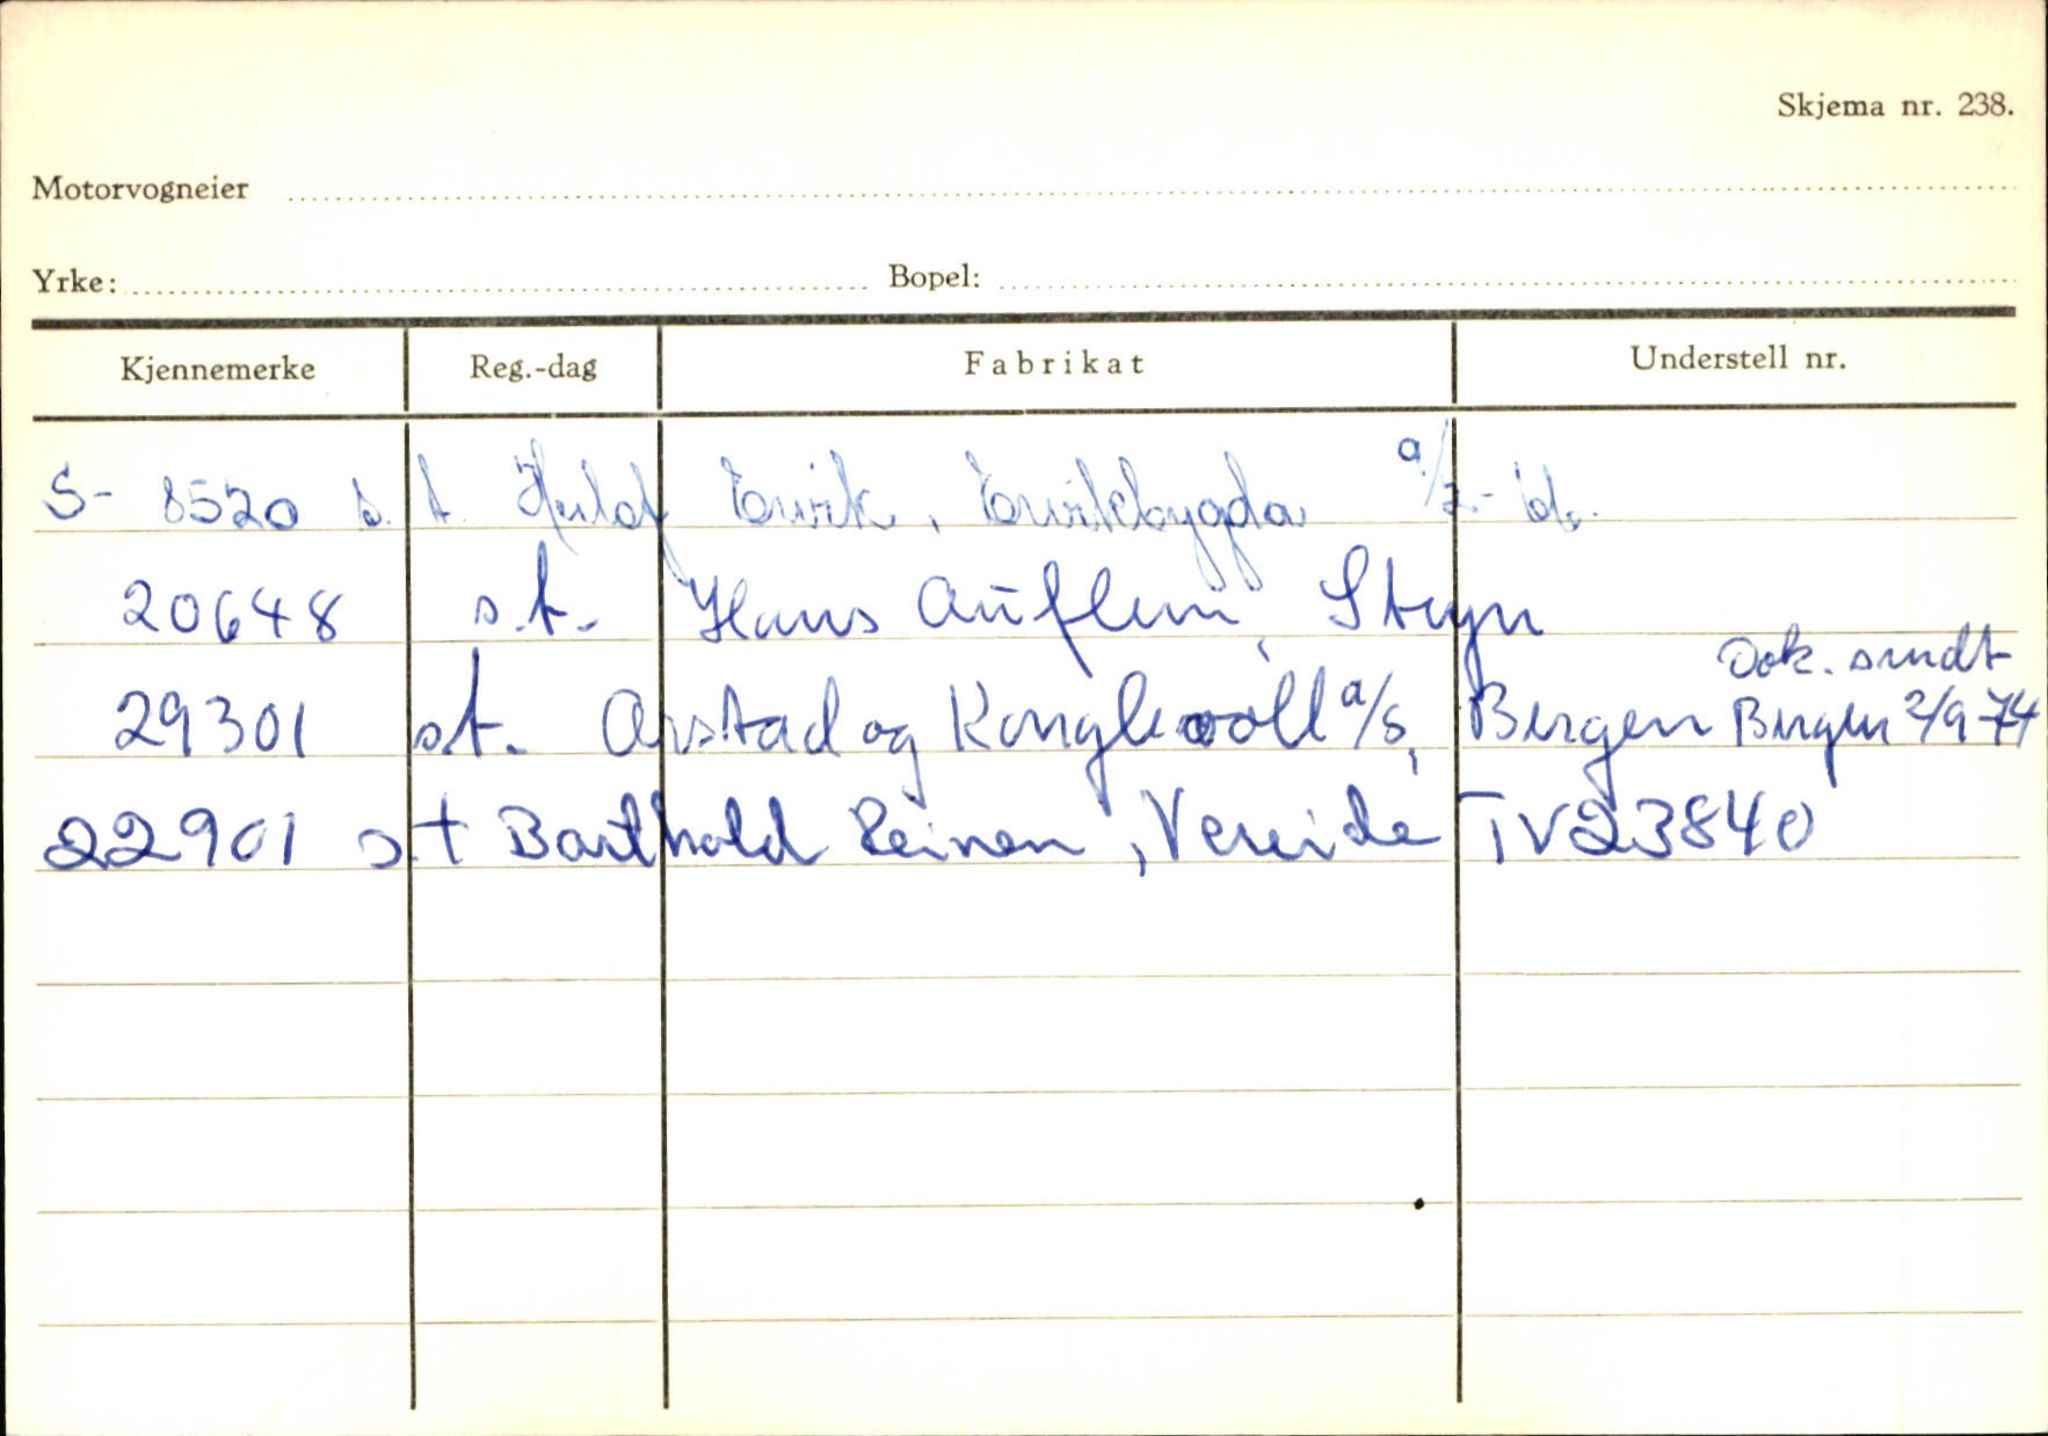 Skjema nr. 238.
Motorvogneier
Yrke: Bopel:
Kjennemerke Reg.-dag Fabrikat Understell nr.
S- 8520 s.t. Herlof Ervik, Ervikbygda 9/2-
20648 s.t. Hans Auflem, Stryn
Dok. sendt
29301 s.t. Arstad og Konglevoll a/s, Bergen Bergen 2/9 74
22901 s.t Barthold Reinen, Vereide TV23840